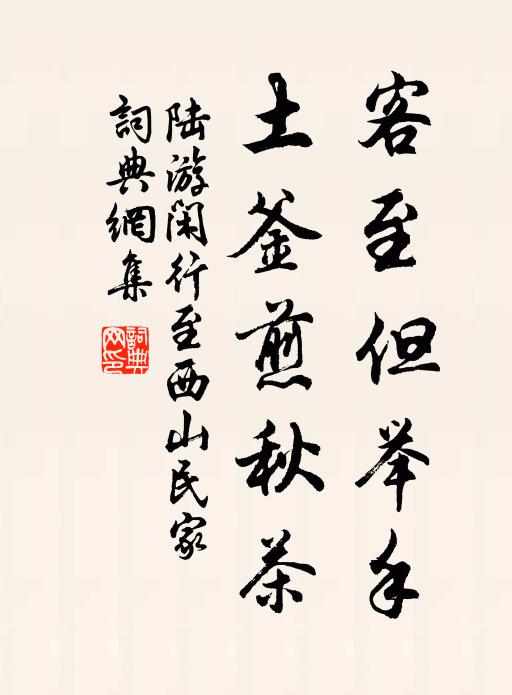 客至但举手
土釜煎秋茶
陆游闲行至西山民家
詞典網集
詞典
网印